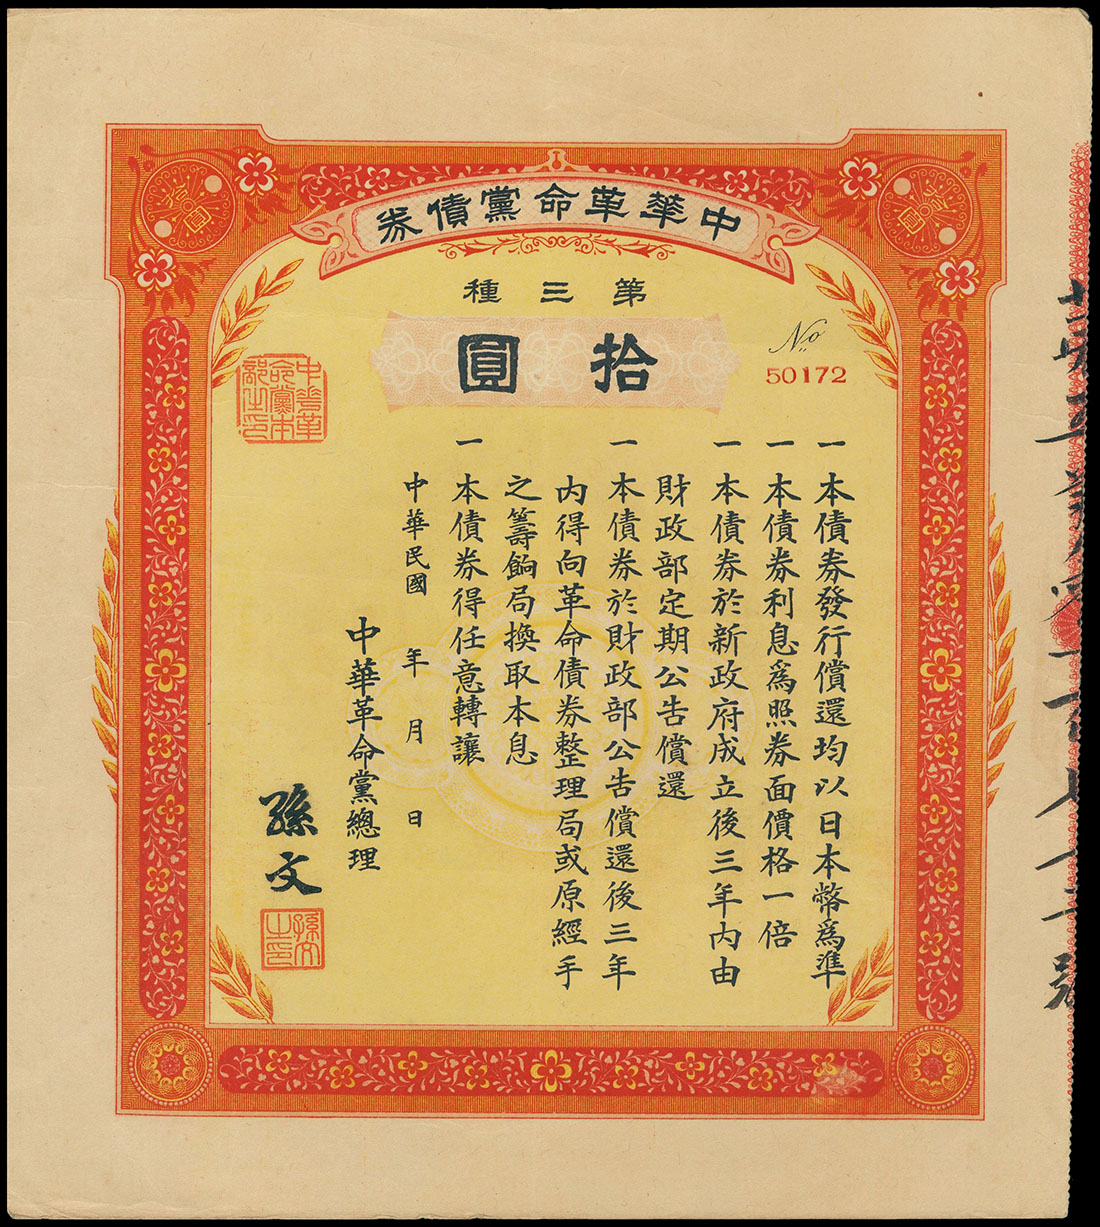 中華革命黨債券
第三種
拾圓
No
50172
一本債券發行償還均以日本幣爲準
一本債券利息爲照券面價格一倍
一本債券於新政府成立後三年內由
財政部定期公告償還
一本債券於財政部公告償還後三年
內得向革命債券整理局或原經手
之籌餉局換取本息
一本債券得任意轉讓
中華民國 年 月 日
中華革命黨總理
孫文
中華革命黨本部之印
孫文之印